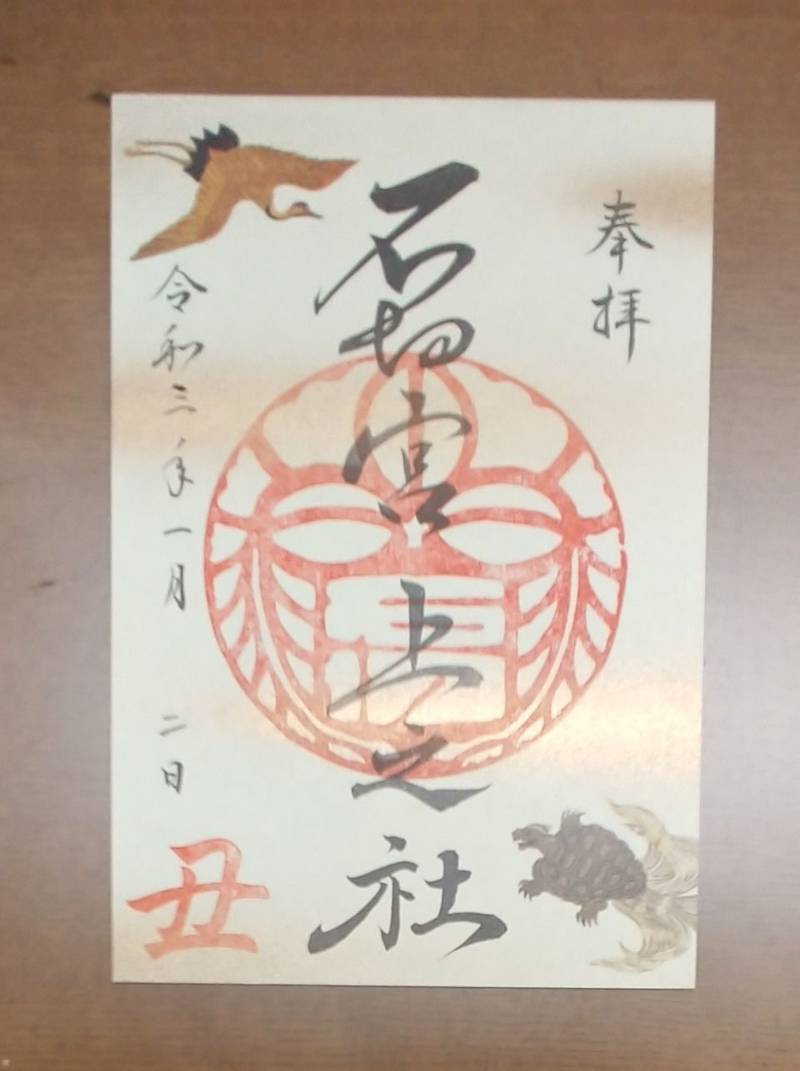 奉拝
石切宮上之社
令和三年一月 二日
丑